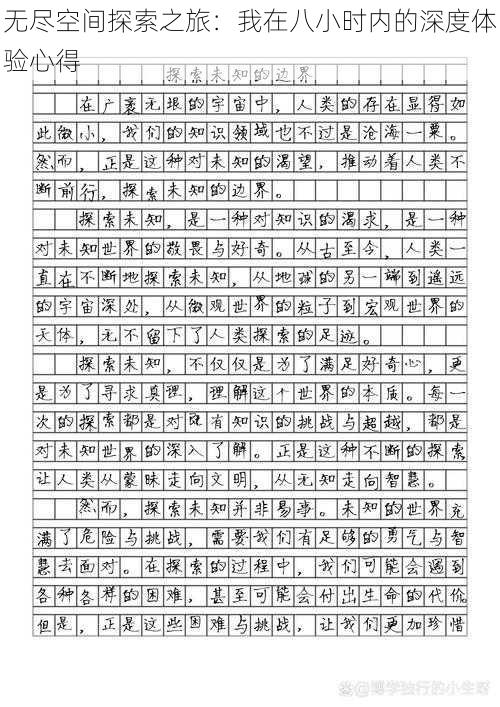 无尽空间探索之旅：我在八小时内的深度体
验心得
探索未知的边界
在广袤无垠的宇宙中，人类的存在显得如
此微小，我们的知识领域也不过是沧海一粟。
然而，正是这种对未知的渴望，推动着人类不
断前行，探索未知的边界。
探索未知，是一种对知识的渴求，是一种
对未知世界的敬畏与好奇。从古至今，人类一
直在不断地探索未知，从地球的另一端到遥远
的宇宙深处，从微观世界的粒子到宏观世界的
天体，无不留下了人类探索的足迹。
探索未知，不仅仅是为了满足好奇心，更
是为了寻求真理，理解这个世界的本质。每一
次的探索都是对既有知识的挑战与超越，都是
对未知世界的深入了解。正是这种不断的探索
让人类从蒙昧走向文明，从无知走向智慧。
然而，探索未知并非易事。未知的世界充
满了危险与挑战，需要我们有足够的勇气与智
慧去面对。在探索的过程中，我们可能会遇到
各种各样的困难，甚至可能会付出生命的代价
但是，正是这些困难与挑战，让我们更加珍惜
@博学独行的小生呀